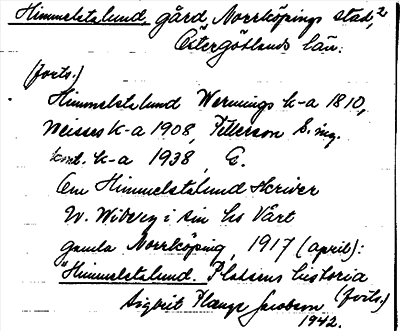 Himmelstalund, gård, Norrköpings stad, 2
Östergötlands län.
(forts.)
Himmelstalund Wernings k-a 1810,
Weisses k-a 1908, Petterson S. ing.
kont. k-a 1938, G.
Om Himmelstalund skriver
W. Wiberg i sin bs Vårt
gamla Norrköping, 1917 (april):
"Himmelstalund. Platsens historia
(forts.)
Sigbrit Jacobson
1942.